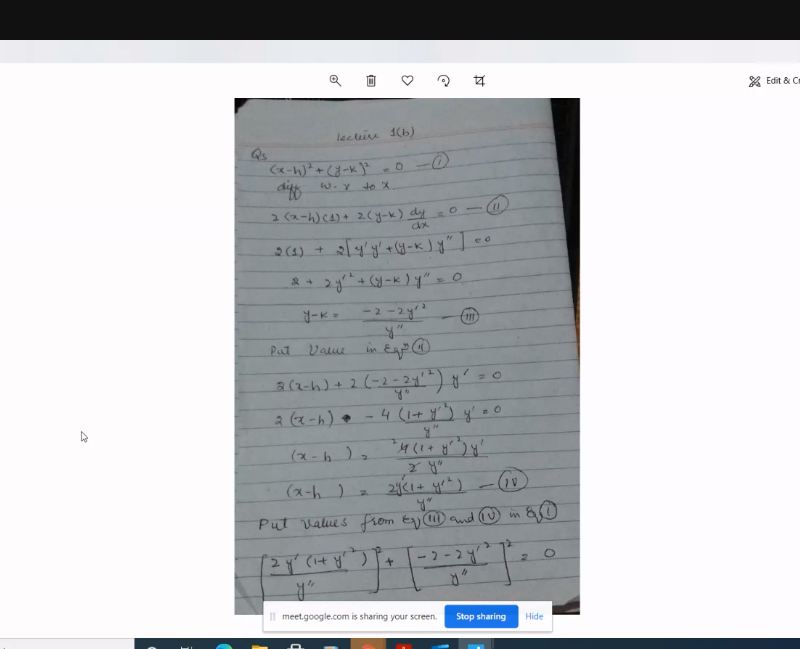 Edit & Cr
Lecture 1(b)
Q5
(x-h)² + (y-k)² = 0 — (I)
diff w.r to x
2(x-h)(1) + 2(y-k) dy/dx = 0 — (II)
2(1) + 2[y'y' + (y-k) y''] = 0
2 + 2y'² + (y-k) y'' = 0
y-k = (-2-2y'²)/y'' — (III)
Put Value in Eqⁿ (II)
2(x-h) + 2((-2-2y'²)/y'') y' = 0
2(x-h) - 4((1+y'²)/y'') y' = 0
(x-h) = ²4(1+y'²)y'/2 y''
(x-h) = 2y'(1+y'²)/y'' — (IV)
Put values from Eq (III) and (IV) in Eq (I)
[2y'(1+y'²)/y'']² + [(-2-2y'²)/y'']² = 0
meet.google.com is sharing your screen. Stop sharing Hide